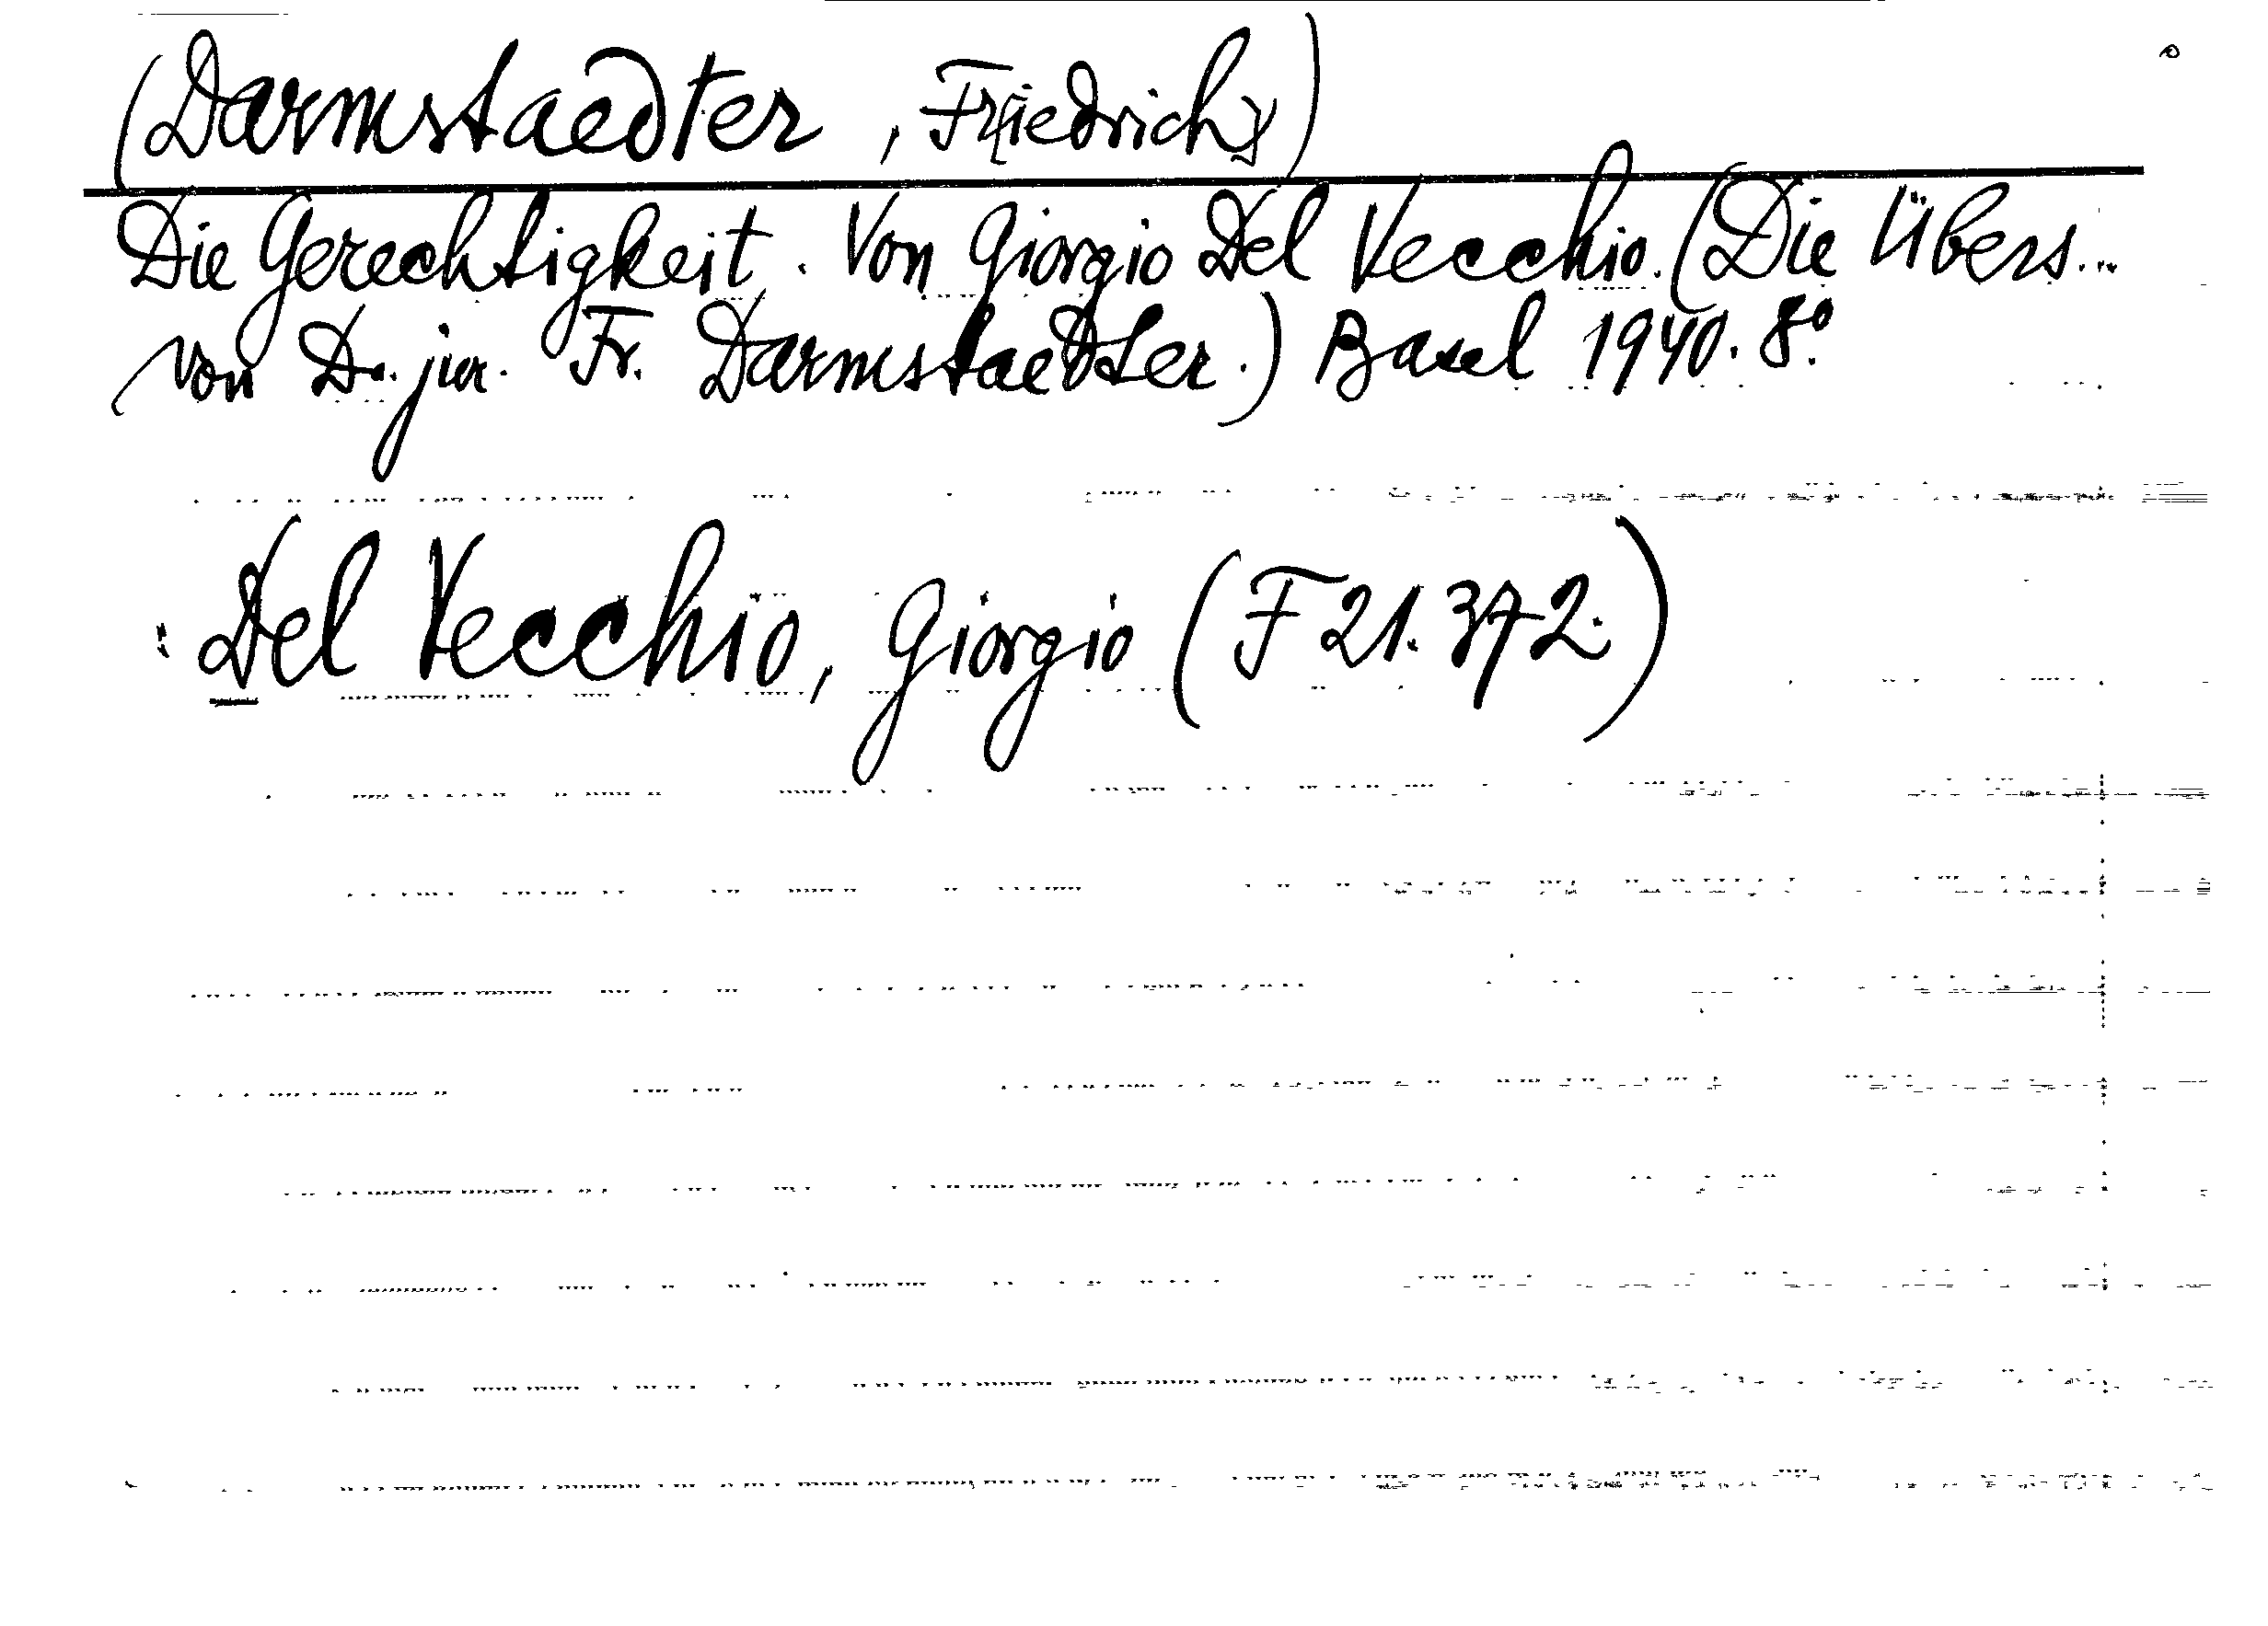 (Darmstaedter, Friedrich)
Die Gerechtigkeit. Von Giorgio Del Vecchio. (Die Übers...
von Dr. jur. Fr. Darmstaedter.) Basel 1940. 8°.
: Del Vecchio, Giorgio (F 21.372.)